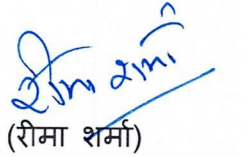 रीमा शर्मा
(रीमा शर्मा)